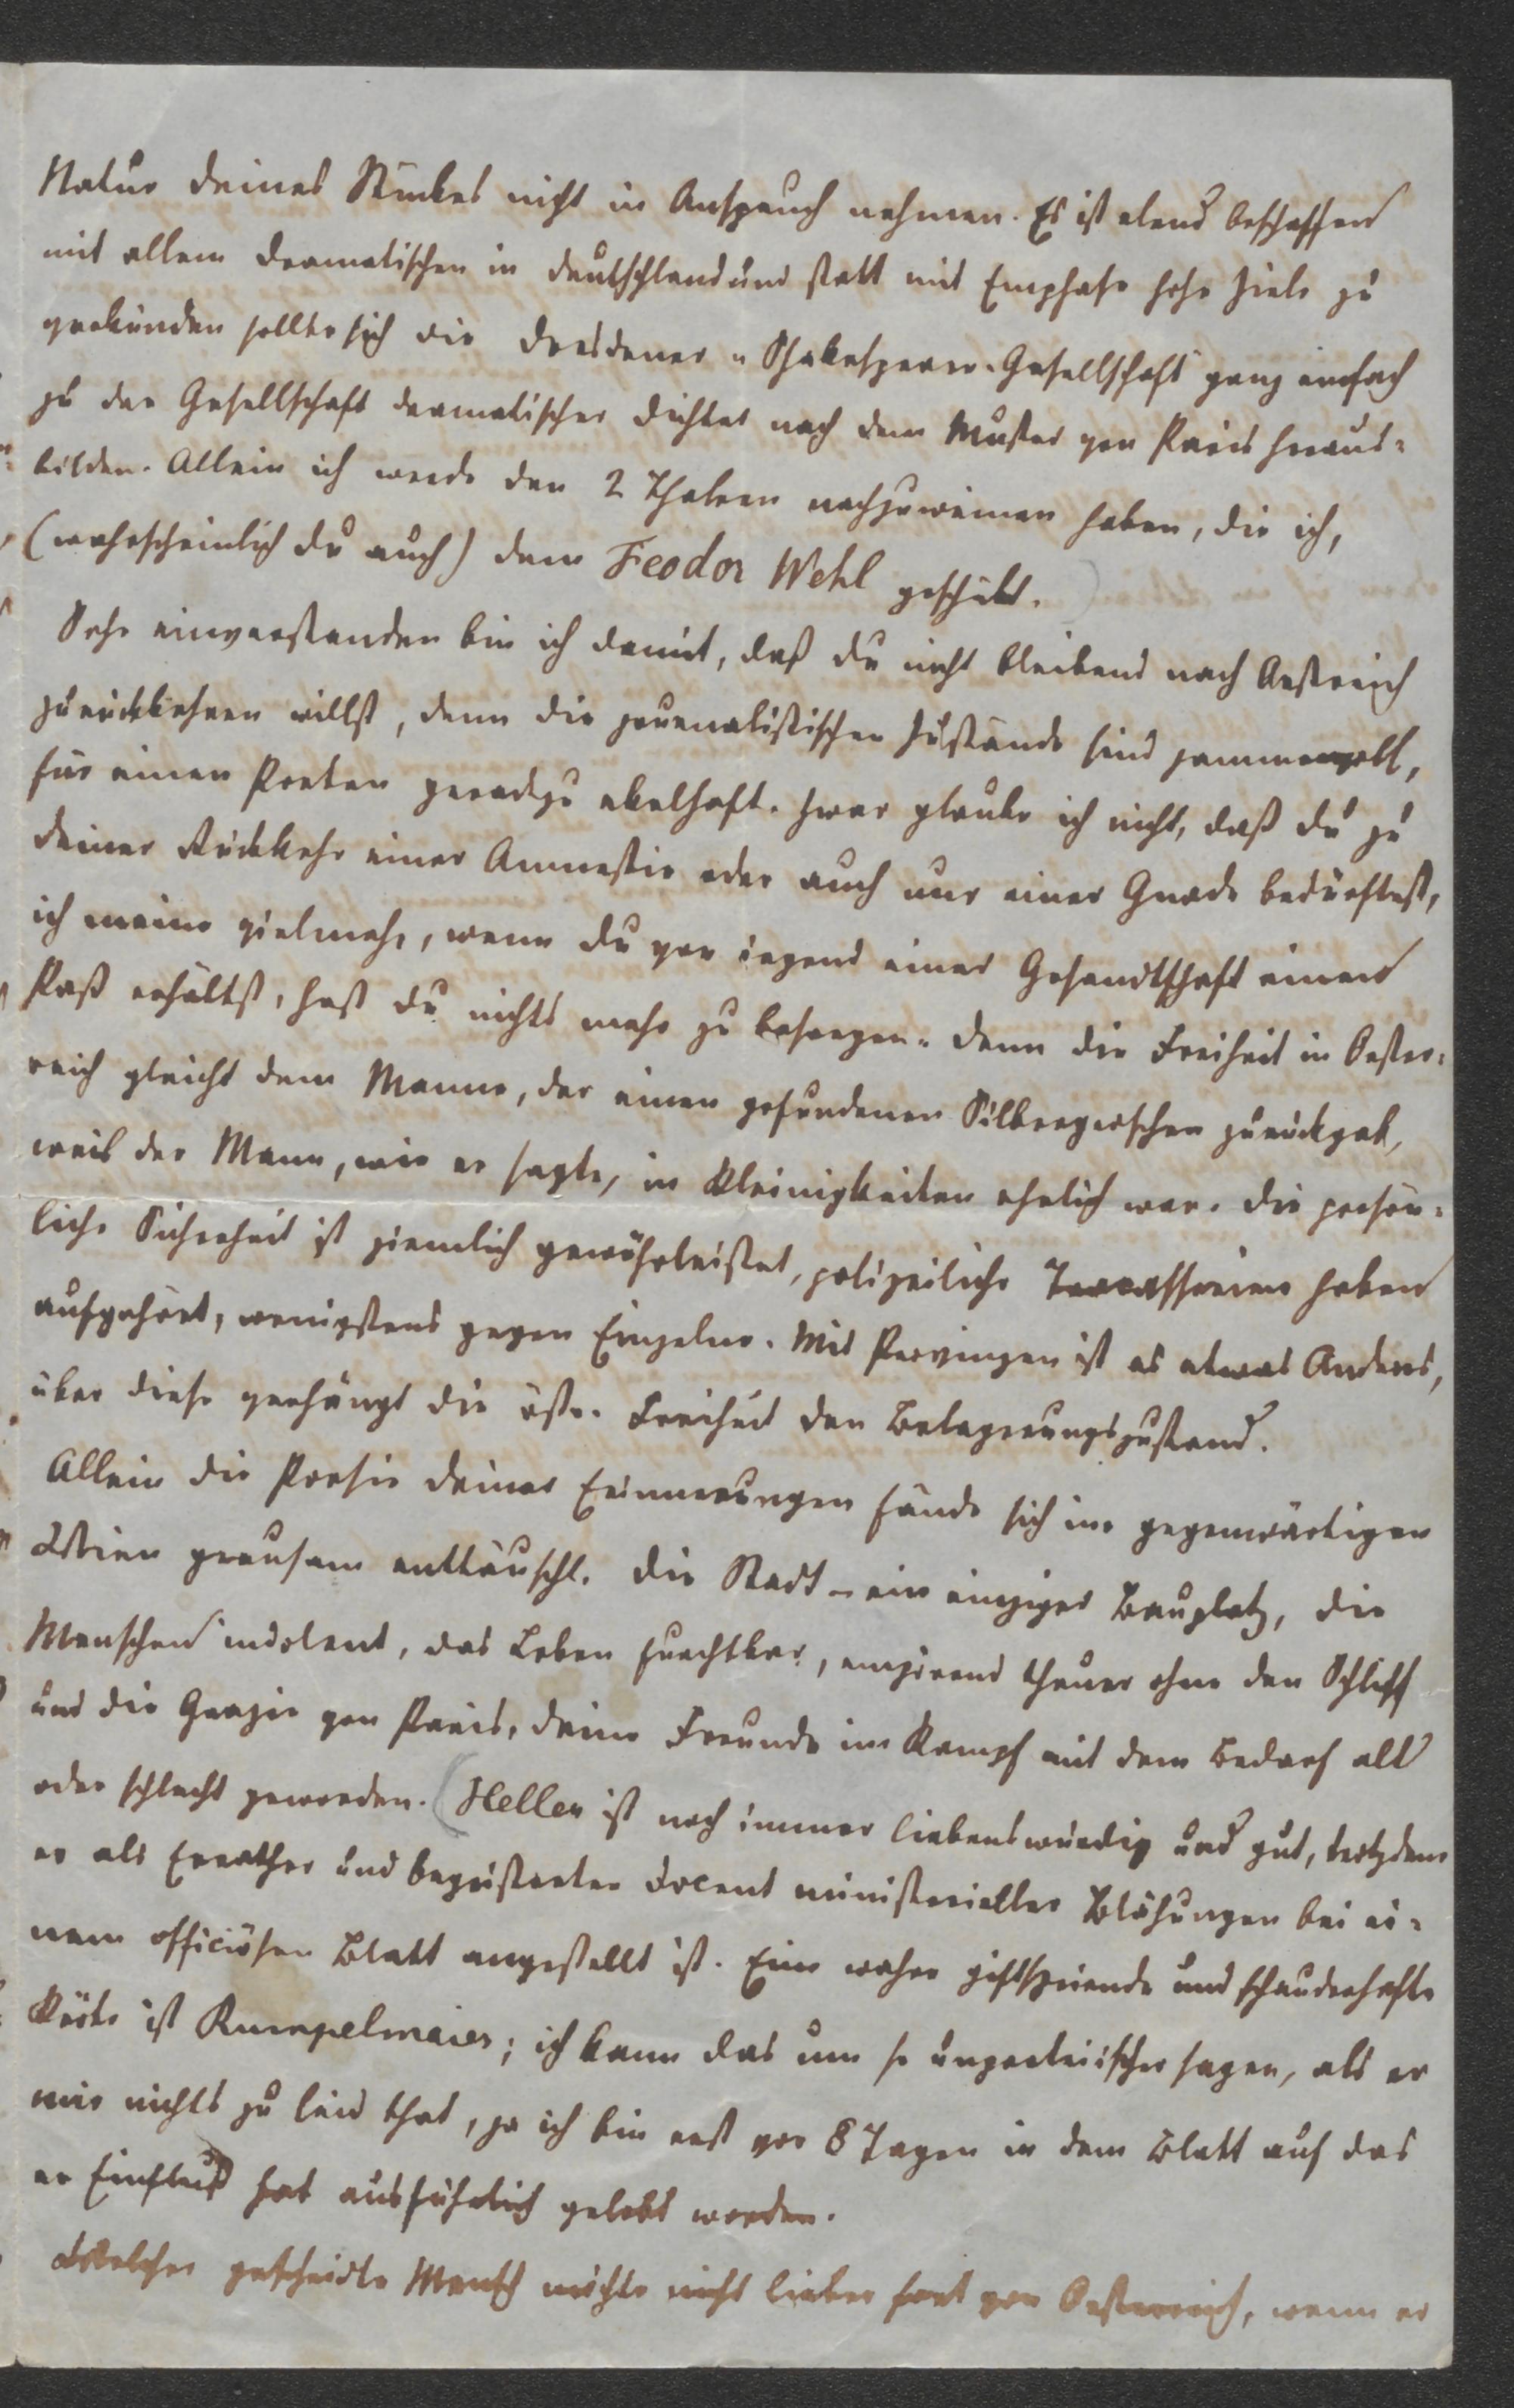 Natur deines Stückes nicht in Anspruch nehmen. Es ist elend beschaffen
mit allem Dramatischen in Deutschland und statt mit Emphase hohe Ziele zu
verkünden sollte sich die Dresdener „Shakespeare-Gesellschaft ganz einfach
zu der Gesellschaft dramatischer Dichter nach dem Muster von Paris heraus-
bilden. Allein ich werde den 2 Thalern nachzuweinen haben, die ich,
(wahrscheinlich du auch) dem Feodor Wehl geschickt.
Sehr einverstanden bin ich damit, daß du nicht bleibend nach Oestreich
zurückkehren willst, denn die journalistischen Zustände sind jammervoll,
für einen Poeten geradezu ekelhaft. Zwar glaube ich nicht, daß du zu
deiner Rückkehr einer Amnestie oder auch nur einer Gnade bedürftest,
ich meine vielmehr, wenn du von irgend einer Gesandtschaft einen
Paß erhältst, hast du nichts mehr zu besorgen. Denn die Freiheit in Oester-
reich gleicht dem Manne, der einen gefundenen Silbergroschen zurückgab,
weil der Mann, wie er sagte, in Kleinigkeiten ehrlich war. Die persön-
liche Sicherheit ist ziemlich gewährleistet, polizeiliche haben
aufgehört, wenigstens gegen Einzelne. Mit Provinzen ist es etwas Anders,
über diese verhängt die östr. Freiheit den Belagerungszustand.
Allein die Poesie deiner Erinnerungen fände sich im gegenwärtigen
Wien grausam enttäuscht. Die Stadt – ein einziger Bauplatz, die
Menschen indolent, das Leben furchtbar, theuer ohne den Schliff
und die Grazie von Paris, deine Freunde im Kampf mit dem Bedarf alt
oder schlecht geworden. (Heller ist noch immer liebenswürdig und gut, trotzdem
er als Errather und begeisterter Docent ministerieller Blähungen bei ei-
nem officiösen Blatt angestellt ist. Eine wahre giftspeiende und schauderhafte
Kröte ist Rumpelmaier; ich kann das um so unparteiischer sagen, als er
mir nichts zu leid that, ja ich bin erst vor 8 Tagen in dem Blatt auf das
er Einfluß hat ausführlich gelobt worden.
Welcher gescheidte Mensch möchte nicht lieber fort von Oesterreich, wenn er